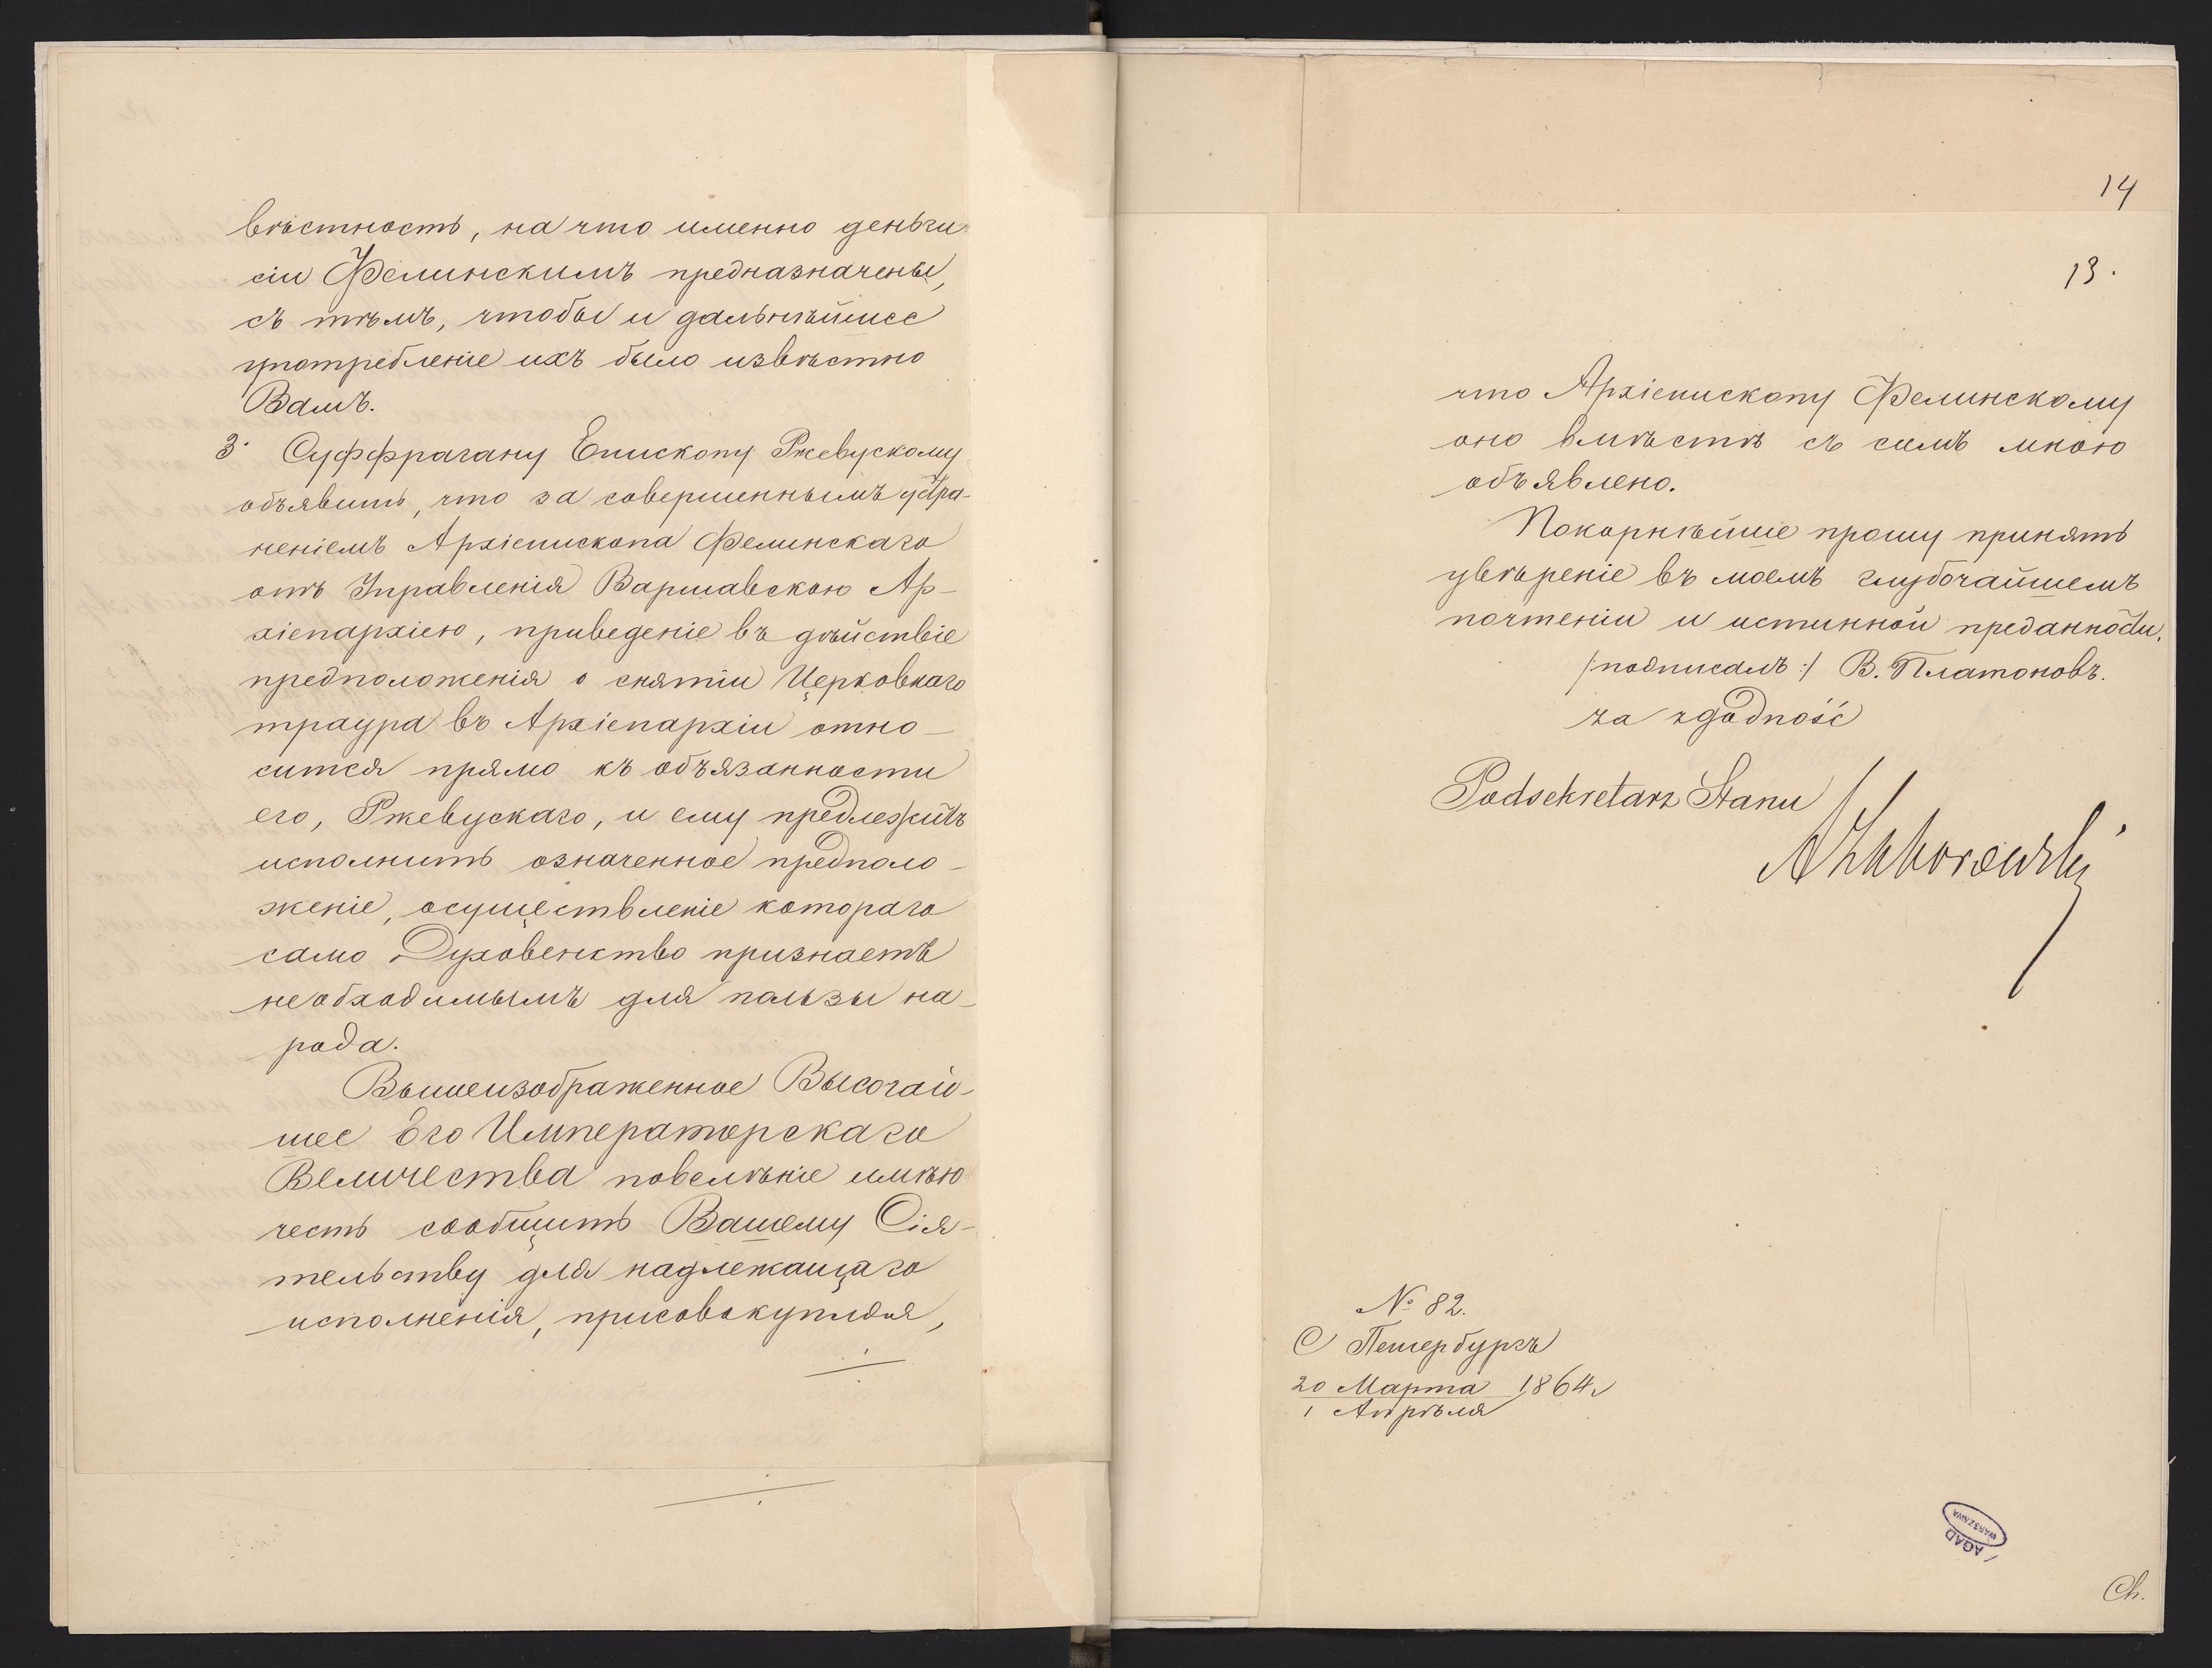 вѣстность, на что именно деньги
сіи Фелинскимъ предназначены,
съ тѣмъ, чтобы и дальнѣйшее
употребленіе ихъ было извѣстно
Вамъ.
3. Суффрагану Епископу Ржевускому
объявить, что за совершеннымъ устра-
неніемъ Архіепископа Фелинскаго
отъ Управленія Варшавскою Ар-
хіепархіею, приведеніе въ дѣйствіе
предположенія о снятіи Церковнаго
траура въ Архіепархіи отно-
сится прямо къ объязанности
его, Ржевускаго, и ему предлежитъ
исполнить означенное предполо-
женіе, осуществленіе котораго
само Духовенство признаетъ
необходимымъ для пользы на-
рода.
Вышеизображенное Высочай-
шее Его Императорскаго
Величества повелѣніе имѣю
честь сообщить Вашему Сія-
тельству для надлежащаго
исполненія, присовокупляя,
14
13.
что Архіепископу Фелинскому
оно вмѣстѣ съ симъ мною
объявлено.
Покорнѣйше прошу принять
увѣреніе въ моемъ глубочайшемъ
почтеніи и истинной преданности.
/:подписалъ:/ В. Платоновъ.
za zgodność
Podsekretarz Stanu
AZaborowski
№ 82.
С Петербургъ
20 Марта 1864.
1 Апрѣля
AGAD
WARSZAWA
Ch.